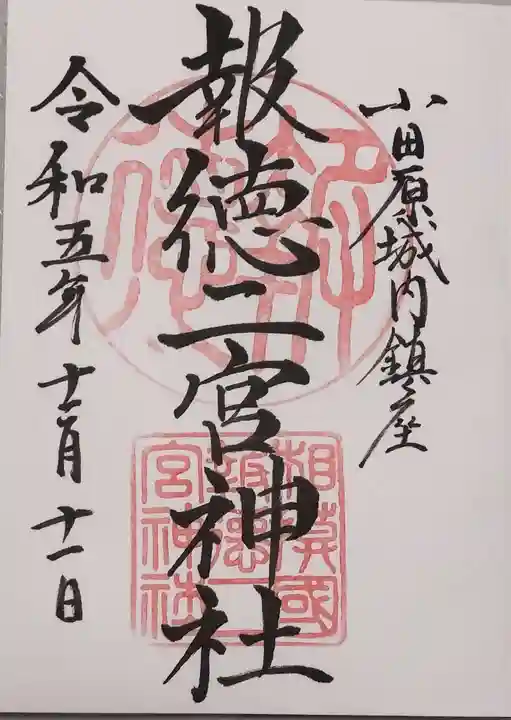 小田原城内鎮座
報徳二宮神社
令和五年十二月十一日
相模國
報徳二
宮神社